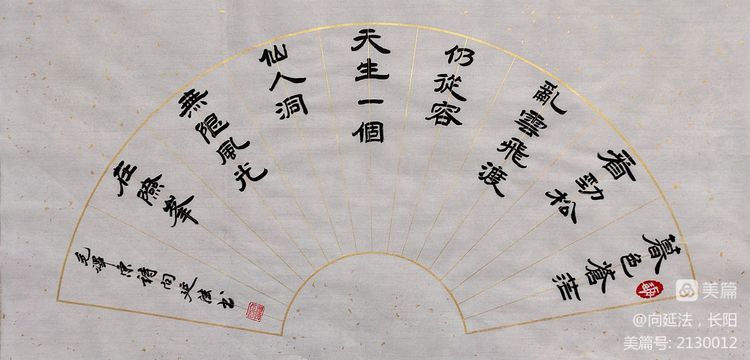 暮色蒼茫
看勁松
亂雲飛渡
仍從容
天生一個
仙人洞
無限風光
在險峯
毛澤東詩向延法书
美篇
@向延法，长阳
美篇号: 2130012